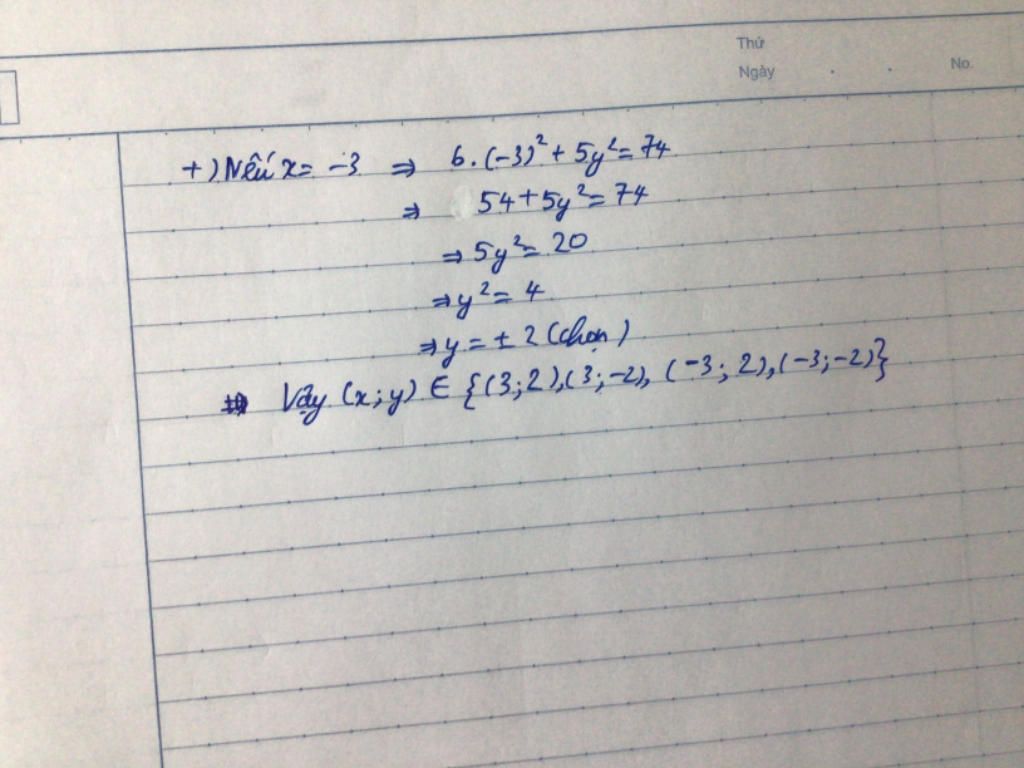 Thứ
Ngày . . No.
+) Nếu x = -3 ⇒ 6.(-3)² + 5y² = 74
⇒ 54 + 5y² = 74
⇒ 5y² = 20
⇒ y² = 4
⇒ y = ± 2 (chọn)
Vậy (x; y) ∈ {(3; 2), (3; -2), (-3; 2), (-3; -2)}